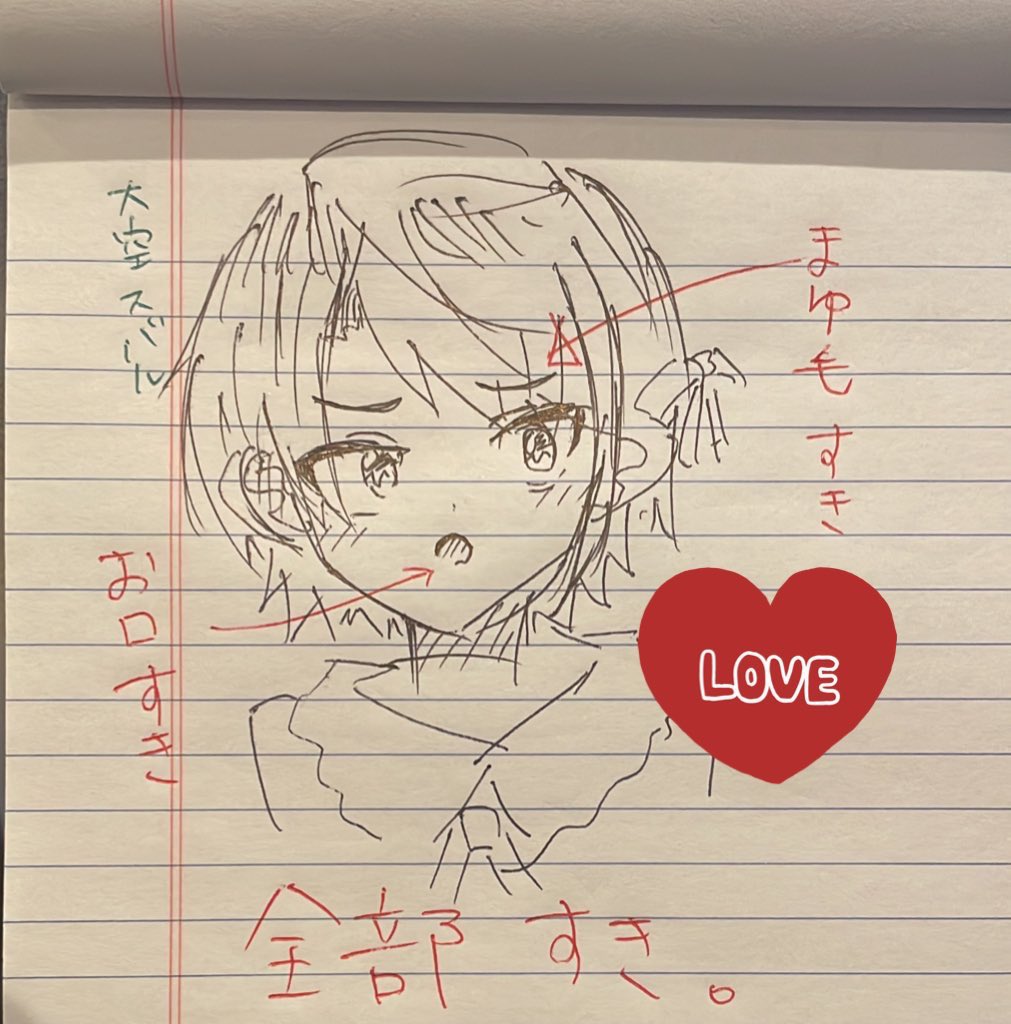 大空スバル
まゆ毛 すき
お口すき
LOVE
全部 すき。